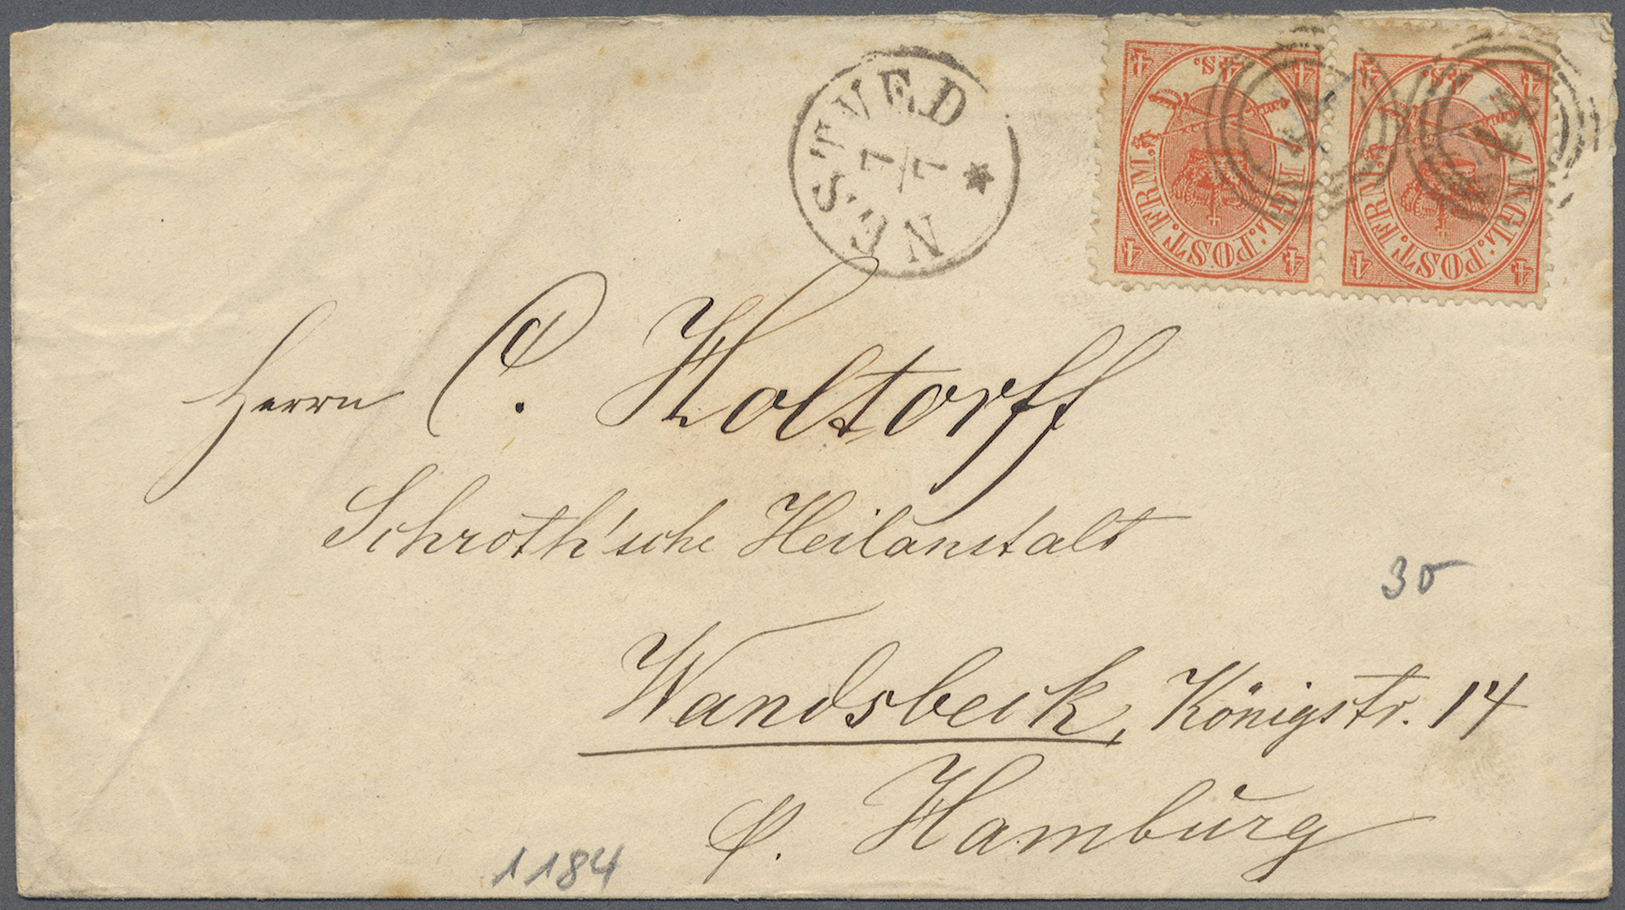 NESTVED
7/7
4 4.S. 4
KGL. POST. FRM.
4 4
4 4.S. 4
KGL. POST. FRM.
4 4
Herrn C. Holtorff
Schroth'sche Heilanstalt
30
Wandsbeck, Königstr. 14
p. Hamburg
1184